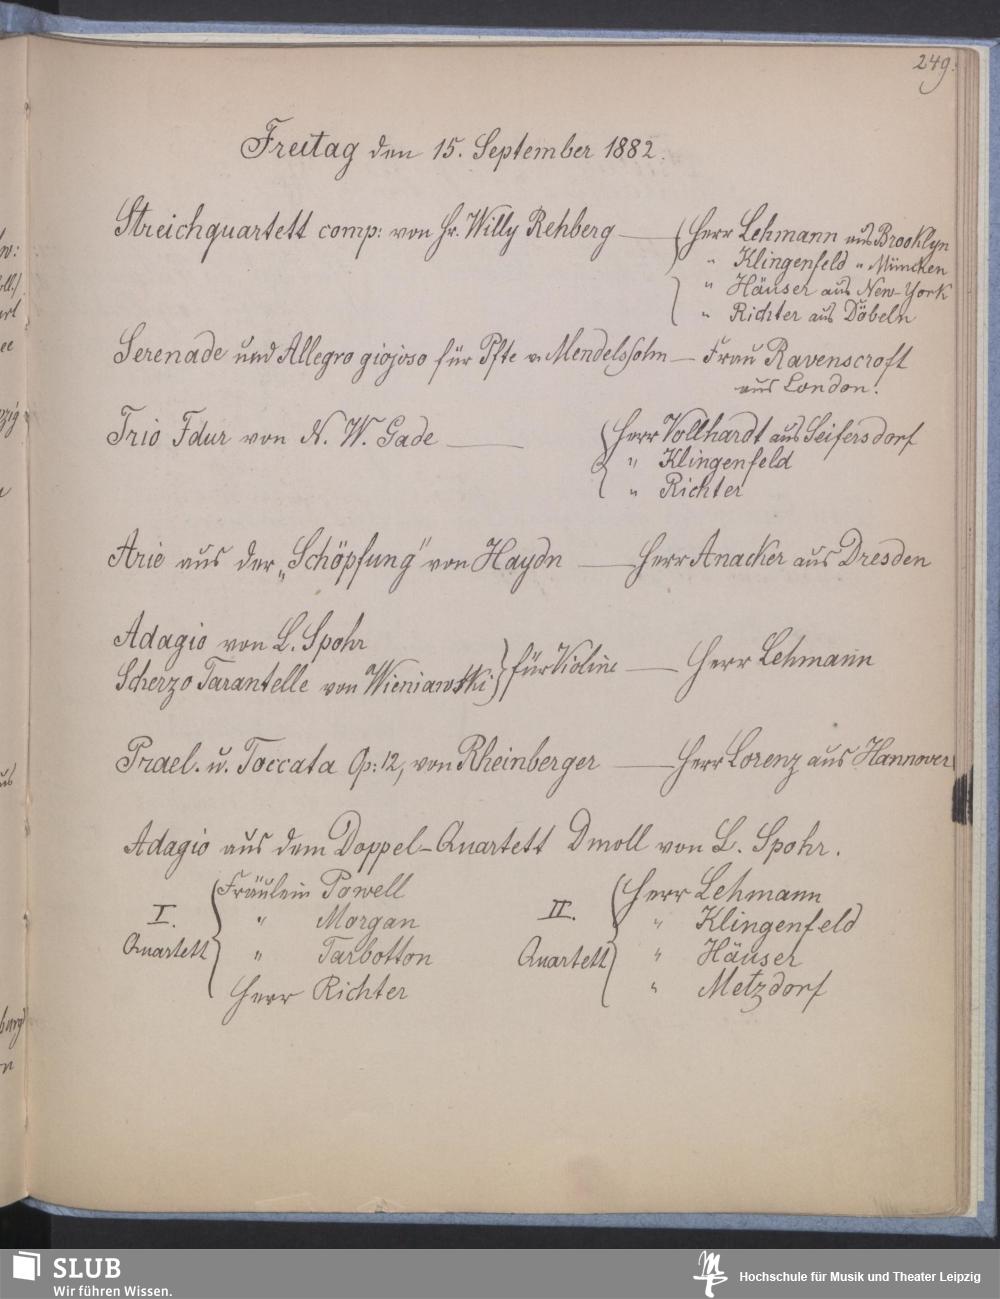 249.
Freitag den 15. September 1882.
Streichquartett comp: von Hr. Willy Rehberg — Herr Lehmann aus Brooklyn
" Klingenfeld " München
" Häuser aus New-York
" Richter aus Döbeln
Serenade und Allegro giojoso für Pfte v. Mendelssohn — Frau Ravenscroft
aus London.
Trio Fdur von N. W. Gade — Herr Vollhardt aus Seifersdorf
" Klingenfeld
" Richter
Arie aus der „Schöpfung" von Haydn — Herr Anacker aus Dresden
Adagio von L. Spohr
Scherzo Tarantelle von Wieniawski } für Violine — Herr Lehmann
Prael. u. Toccata Op: 12, von Rheinberger — Herr Lorenz aus Hannover
Adagio aus dem Doppel-Quartett Dmoll von L. Spohr.
I. Quartett
Fräulein Powell
" Morgan
" Tarbotton
Herr Richter
II. Quartett
Herr Lehmann
" Klingenfeld
" Häuser
" Metzdorf
SLUB
Wir führen Wissen.
Hochschule für Musik und Theater Leipzig